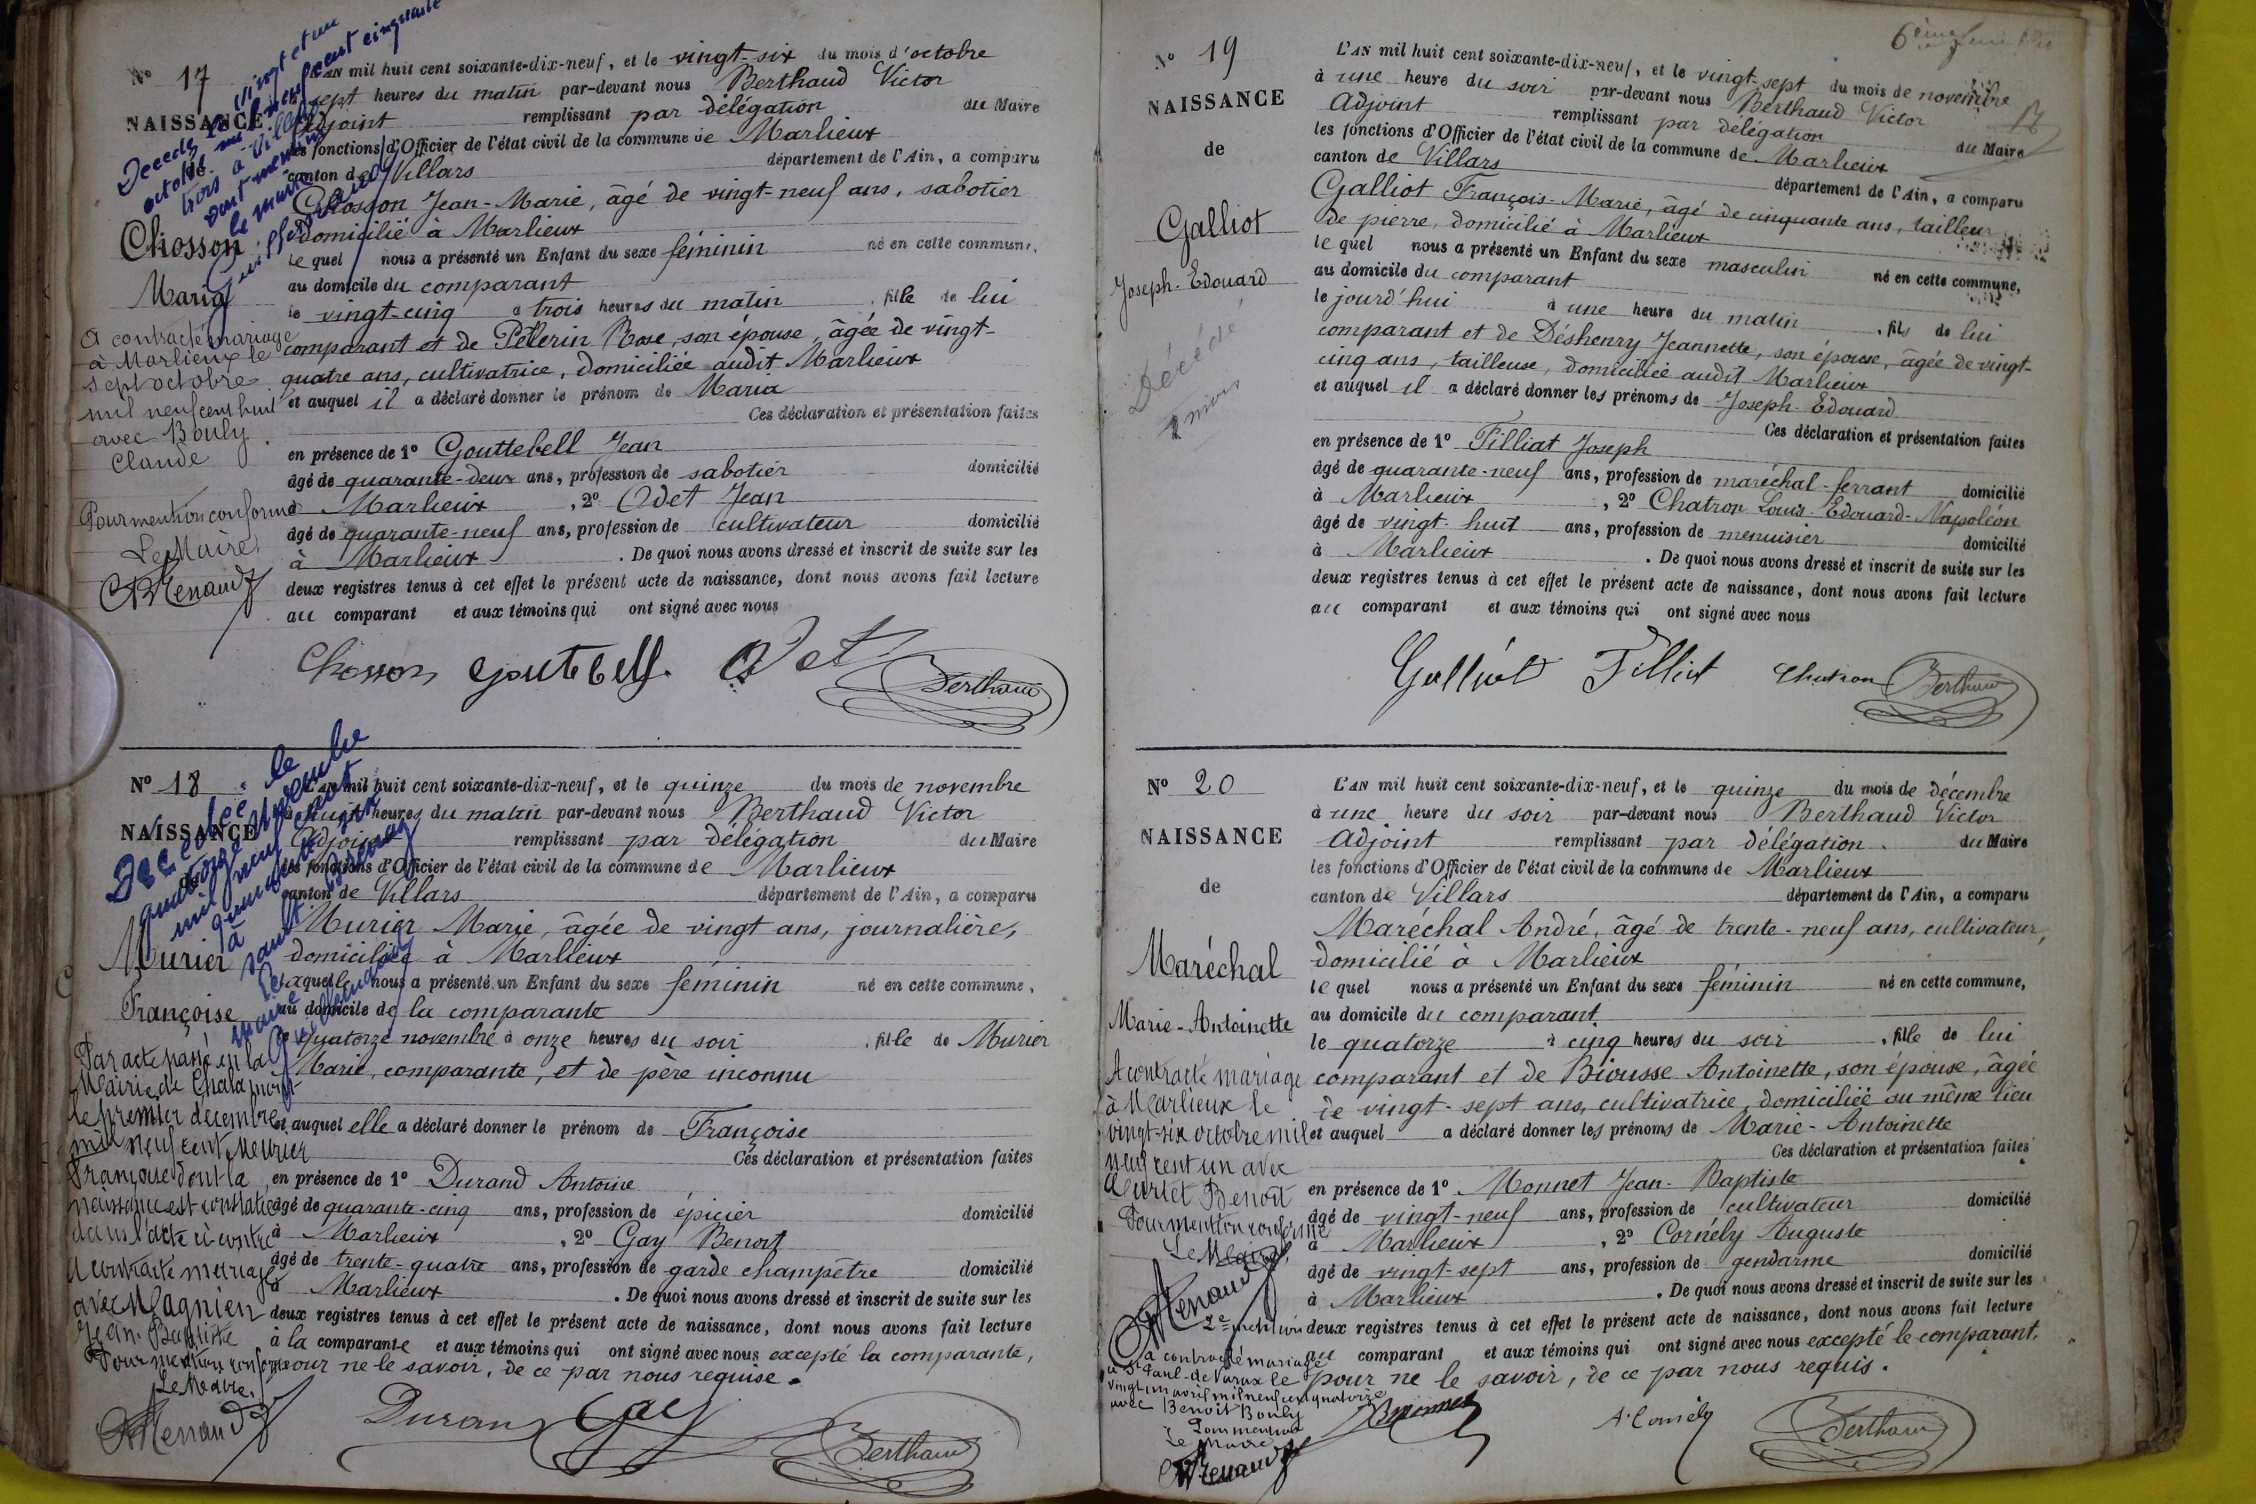 N° 17
NAISSANCE
de
Chosson
Maria
A contracté mariage
à Marlieux le
sept octobre
mil neuf cent huit
avec Bouly
Claude
Pour mention conforme
Le Maire
Renaud
Décédée le vingt et un
octobre mil neuf cent cinquante
trois à Villars
dont mention
le maire
L'AN mil huit cent soixante-dix-neuf, et le vingt-six du mois d'octobre
à sept heures du matin par-devant nous Berthaud Victor
Adjoint remplissant par délégation du Maire
les fonctions d'Officier de l'état civil de la commune de Marlieux
canton de Villars département de l'Ain, a comparu
Chosson Jean-Marie, âgé de vingt-neuf ans, sabotier
domicilié à Marlieux
le quel nous a présenté un Enfant du sexe féminin né en cette commune,
au domicile du comparant
le vingt-cinq à trois heures du matin, fille de lui
comparant et de Pellerin Rose, son épouse, âgée de vingt-
quatre ans, cultivatrice, domiciliée audit Marlieux
et auquel il a déclaré donner le prénom de Maria
Ces déclaration et présentation faites
en présence de 1° Gouttebell Jean
âgé de quarante-deux ans, profession de sabotier domicilié
à Marlieux, 2° Odet Jean
âgé de quarante-neuf ans, profession de cultivateur domicilié
à Marlieux. De quoi nous avons dressé et inscrit de suite sur les
deux registres tenus à cet effet le présent acte de naissance, dont nous avons fait lecture
au comparant et aux témoins qui ont signé avec nous
Chosson Goutebell Odet Berthaud
N° 18
NAISSANCE
de
Murier
Françoise
Par acte passé en la
Mairie de Chalamont
le premier décembre
mil neuf cent Meurier
Françoise dont la
naissance est constatée
dans l'acte ci-contre
a contracté mariage
avec Magnien
Jean-Baptiste
Pour mention conforme
Le Maire,
Renaud
Décédée le
quatorze novembre
mil neuf cent
quarante
à
L'AN mil huit cent soixante-dix-neuf, et le quinze du mois de novembre
à huit heures du matin par-devant nous Berthaud Victor
Adjoint remplissant par délégation du Maire
les fonctions d'Officier de l'état civil de la commune de Marlieux
canton de Villars département de l'Ain, a comparu
Murier Marie, âgée de vingt ans, journalière,
domiciliée à Marlieux
laquelle nous a présenté un Enfant du sexe féminin né en cette commune,
au domicile de la comparante
le quatorze novembre à onze heures du soir, fille de Murier
Marie, comparante, et de père inconnu
et auquel elle a déclaré donner le prénom de Françoise
Ces déclaration et présentation faites
en présence de 1° Durand Antoine
âgé de quarante-cinq ans, profession de épicier domicilié
à Marlieux, 2° Gay Benoit
âgé de trente-quatre ans, profession de garde champêtre domicilié
à Marlieux. De quoi nous avons dressé et inscrit de suite sur les
deux registres tenus à cet effet le présent acte de naissance, dont nous avons fait lecture
à la comparante et aux témoins qui ont signé avec nous excepté la comparante,
pour ne le savoir, de ce par nous requise.
Durand Gay Berthaud
N° 19
NAISSANCE
de
Galliot
Joseph-Edouard
Décédé
2 mois
L'AN mil huit cent soixante-dix-neuf, et le vingt-sept du mois de novembre
à une heure du soir par-devant nous Berthaud Victor
Adjoint remplissant par délégation du Maire
les fonctions d'Officier de l'état civil de la commune de Marlieux
canton de Villars département de l'Ain, a comparu
Galliot François-Marie, âgé de cinquante ans, tailleur
de pierre, domicilié à Marlieux
le quel nous a présenté un Enfant du sexe masculin né en cette commune,
au domicile du comparant
le jourd'hui à une heure du matin, fils de lui
comparant et de Déshenry Jeannette, son épouse, âgée de vingt-
cinq ans, tailleuse, domiciliée audit Marlieux
et auquel il a déclaré donner les prénoms de Joseph-Edouard
Ces déclaration et présentation faites
en présence de 1° Filliat Joseph
âgé de quarante-neuf ans, profession de maréchal-ferrant domicilié
à Marlieux, 2° Chatron Louis-Edouard-Napoléon
âgé de vingt-huit ans, profession de menuisier domicilié
à Marlieux. De quoi nous avons dressé et inscrit de suite sur les
deux registres tenus à cet effet le présent acte de naissance, dont nous avons fait lecture
au comparant et aux témoins qui ont signé avec nous
Galliot Filliat Chatron Berthaud
N° 20
NAISSANCE
de
Maréchal
Marie-Antoinette
A contracté mariage
à Marlieux le
vingt-six octobre mil
neuf cent un avec
Benoît
Pour mention conforme
Le Maire,
Renaud
2e mention
a contracté mariage
à St Paul-de-Varax le
vingt un avril mil neuf cent quatorze
avec Benoît Bouly
Pour mention
Le Maire
Renaud
L'AN mil huit cent soixante-dix-neuf, et le quinze du mois de décembre
à une heure du soir par-devant nous Berthaud Victor
Adjoint remplissant par délégation du Maire
les fonctions d'Officier de l'état civil de la commune de Marlieux
canton de Villars département de l'Ain, a comparu
Maréchal André, âgé de trente-neuf ans, cultivateur,
domicilié à Marlieux
le quel nous a présenté un Enfant du sexe féminin né en cette commune,
au domicile du comparant
le quatorze à cinq heures du soir, fille de lui
comparant et de Biousse Antoinette, son épouse, âgée
de vingt-sept ans, cultivatrice, domiciliée au même lieu
et auquel a déclaré donner les prénoms de Marie-Antoinette
Ces déclaration et présentation faites
en présence de 1° Monnet Jean-Baptiste
âgé de vingt-neuf ans, profession de cultivateur domicilié
à Marlieux, 2° Cornély Auguste
âgé de vingt-sept ans, profession de gendarme domicilié
à Marlieux. De quoi nous avons dressé et inscrit de suite sur les
deux registres tenus à cet effet le présent acte de naissance, dont nous avons fait lecture
au comparant et aux témoins qui ont signé avec nous excepté le comparant,
pour ne le savoir, de ce par nous requis.
Monnet A. Cornély Berthaud